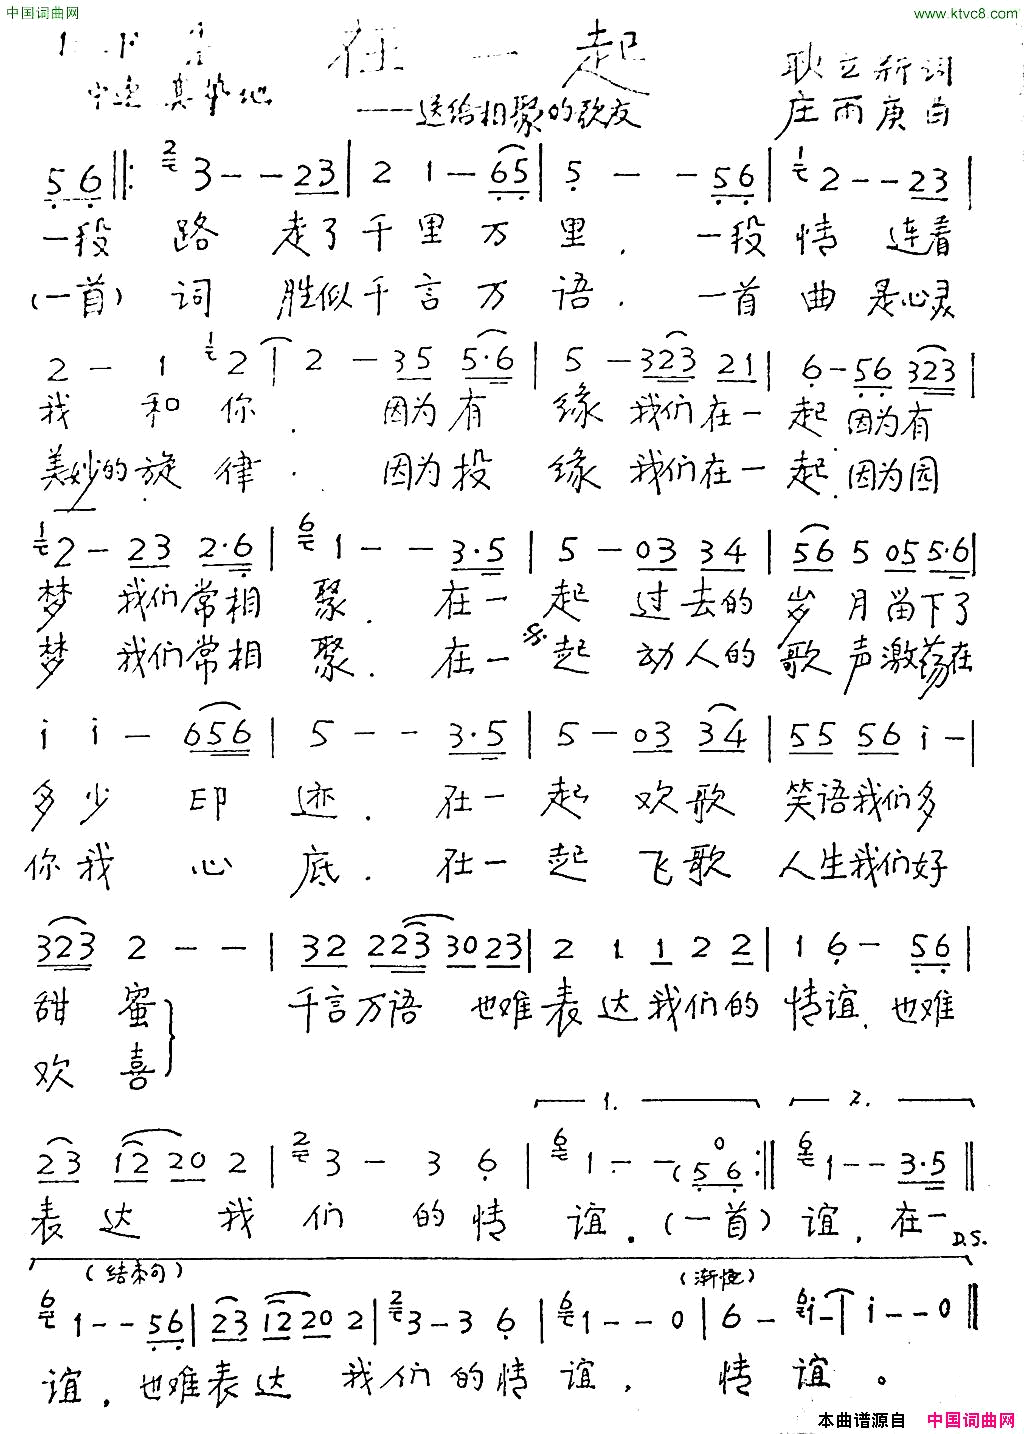 中国词曲网
www.ktvc8.com
在一起
耿立新词
中速 真挚地
——送给相聚的歌友
庄雨庚曲
5 6 ‖: 3 - - 2 3 | 2 1 - 6 5 | 5 - - 5 6 | 2 - - 2 3 |
一段 路 走了千里万里. 一段情 连着
(一首) 词 胜似千言万语. 一首曲 是心灵
2 - 1 2 | 2 - 3 5 5·6 | 5 - 3 2 3 2 1 | 6 - 5 6 3 2 3 |
我 和你. 因为有 缘 我们在一起因为有
美妙的旋律. 因为投 缘 我们在一起.因为园
2 - 2 3 2·6 | 1 - - 3·5 | 5 - 0 3 3 4 | 5 6 5 0 5 5·6 |
梦 我们常相 聚. 在一 起 过去的 岁 月留下了
梦 我们常相 聚. 在一 起 动人的 歌声激荡在
i i - 6 5 6 | 5 - - 3·5 | 5 - 0 3 3 4 | 5 5 5 6 i - |
多少 印 迹. 在一 起 欢歌 笑语我们多
你我 心 底. 在一 起 飞歌 人生我们好
3 2 3 2 - - | 3 2 2 2 3 3 0 2 3 | 2 1 1 2 2 | 1 6 - 5 6 |
甜 蜜 千言万语 也难表达我们的 情谊.也难
欢 喜
1. 2.
2 3 1 2 2 0 2 | 3 - 3 6 | 1 - - (5 6 :‖ 1 - - 3·5 ‖
表 达 我 们 的情 谊.(一首) 谊. 在一
D.S.
(结束句) (渐慢)
1 - - 5 6 | 2 3 1 2 2 0 2 | 3 - 3 6 | 1 - - 0 | 6 - i - | i - - 0 ‖
谊. 也难表达 我们的情谊. 情 谊。
本曲谱源自 中国词曲网